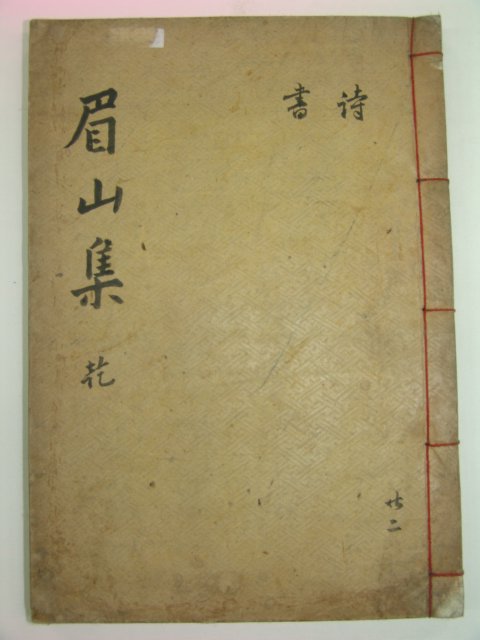 眉山集 乾
詩
書
共二